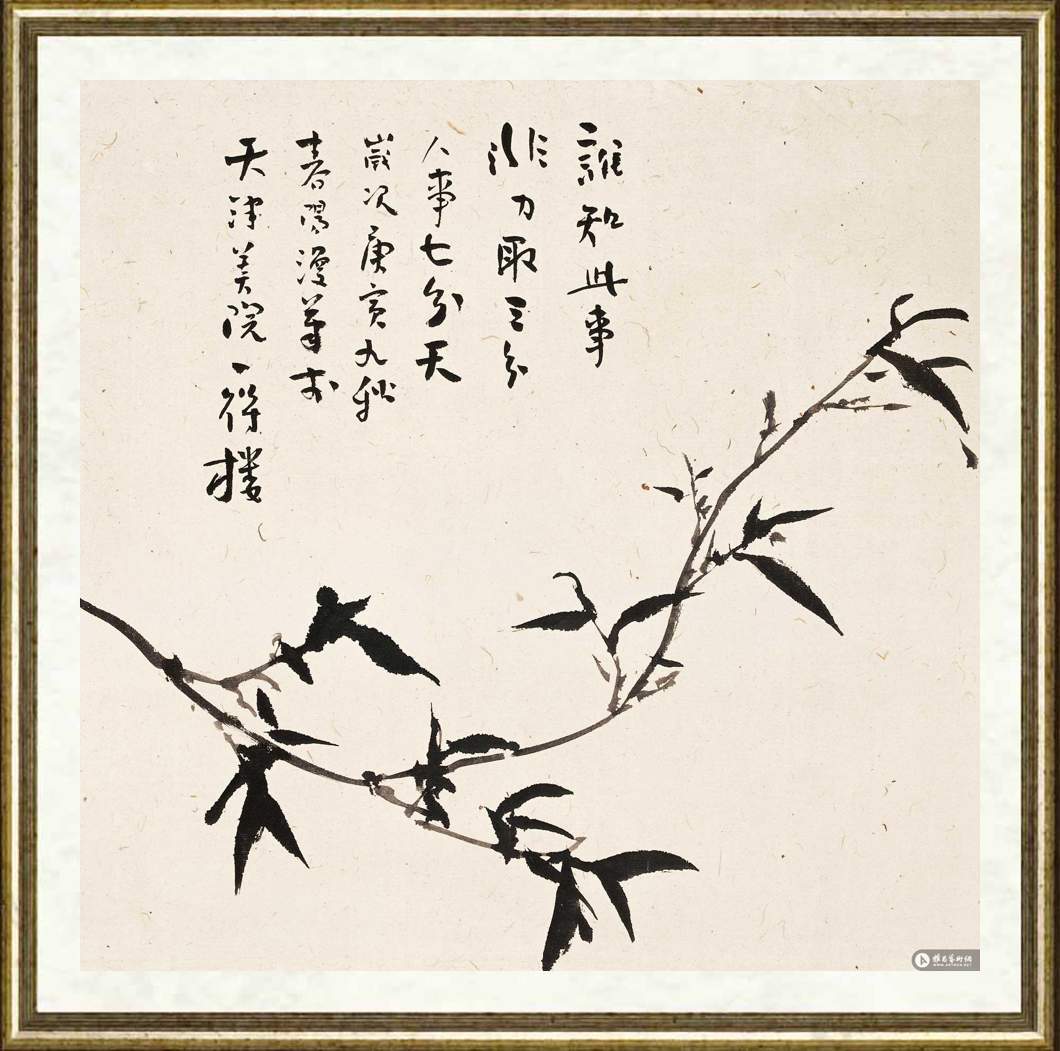 誰知此事
非力取三分
人事七分天
歲次庚寅九秋
春陽漫筆於
天津美院一得樓
雅昌藝術網